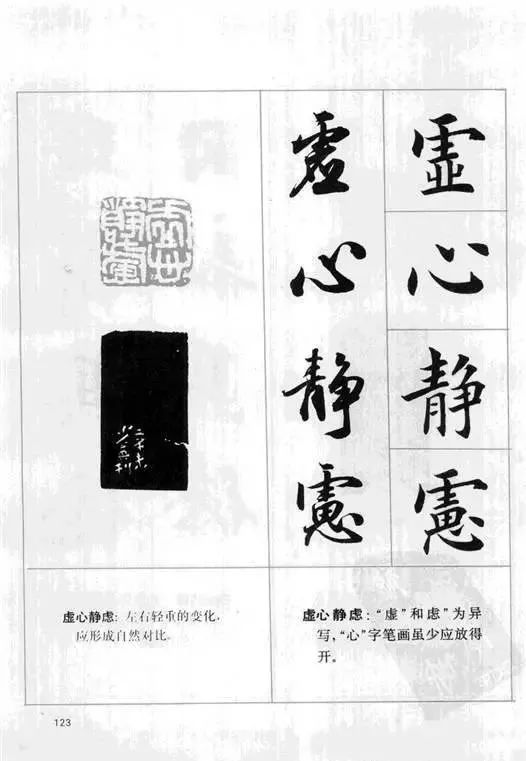 虚心静虑
虚心静虑
虚心静虑：左右轻重的变化，
应形成自然对比。
虚心静虑：“虚”和虑”为异
写，“心”字笔画虽少应放得
开。
123